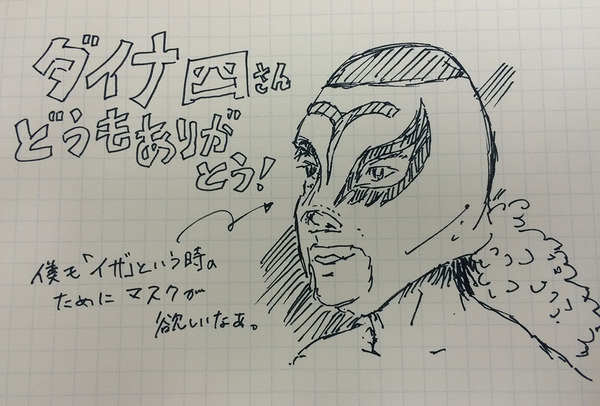 ダイナ四さん
どうもありが
とう!
僕も「イザ」という時の
ためにマスクが
欲しいなぁ。